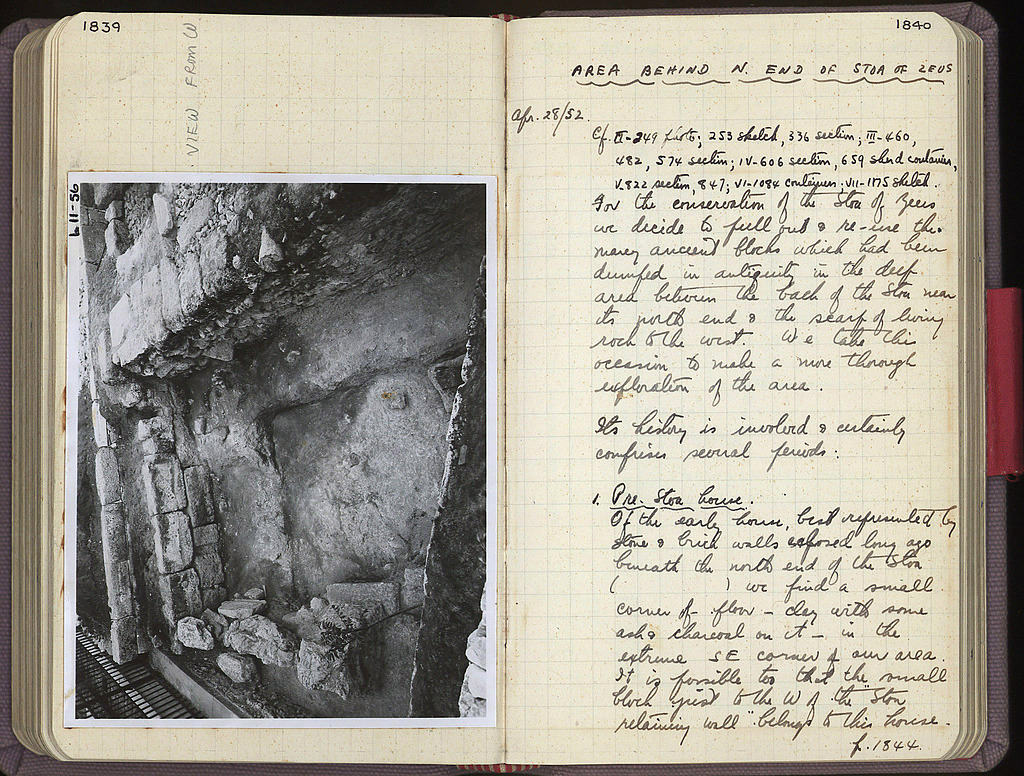 1839
VIEW FROM W
LII-56
1840
AREA BEHIND N. END OF STOA OF ZEUS
Apr. 28/52.
Cf. II-249 photo; 253 sketch, 336 section; III-460,
482, 574 section; IV-606 section, 659 sherd container,
V.822 section, 847; VI-1084 containers; VII-1175 sketch.
For the conservation of the Stoa of Zeus
we decide to pull out & re-use the
many ancient blocks which had been
dumped in antiquity in the deep
area between the back of the Stoa near
its north end & the scarp of living
rock to the west. We take this
occasion to make a more thorough
exploration of the area.
Its history is involved & certainly
comprises several periods:
1. Pre-Stoa house.
Of the early house, best represented by
stone & brick walls exposed long ago
beneath the north end of the Stoa
( ) we find a small
corner of floor - clay with some
ash & charcoal on it - in the
extreme SE corner of our area.
It is possible too that the small
block just to the W of the "Stoa
retaining wall" belongs to this house.
p. 1844